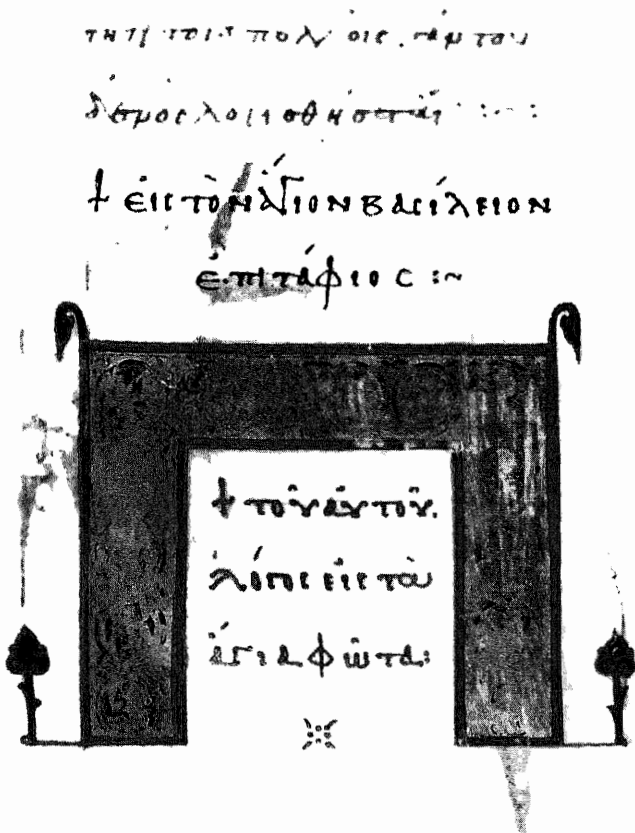 τοῖς πολλοῖς
λογισθήσεται :~ :
† εἰς τὸν ἅγιον βασίλειον
ἐπιτάφιος :~
† τοῦ αὐτοῦ.
λόγος εἰς τὰ
ἅγια φῶτα: